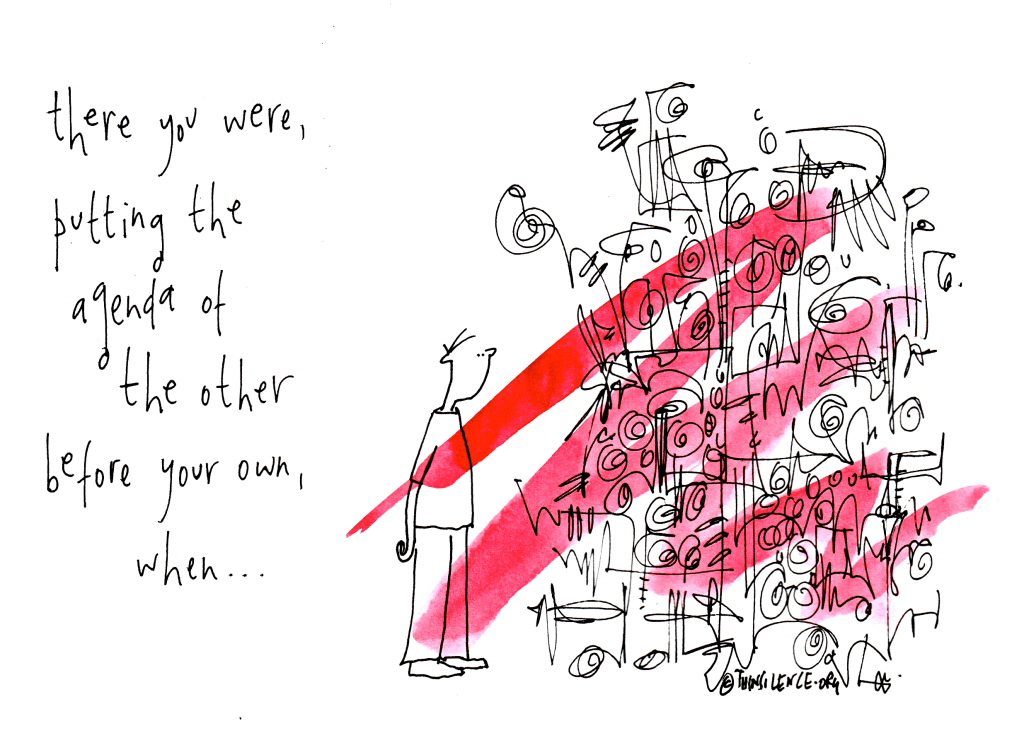 there you were,
putting the
agenda of
the other
before your own,
when...
©THINSILENCE.ORG